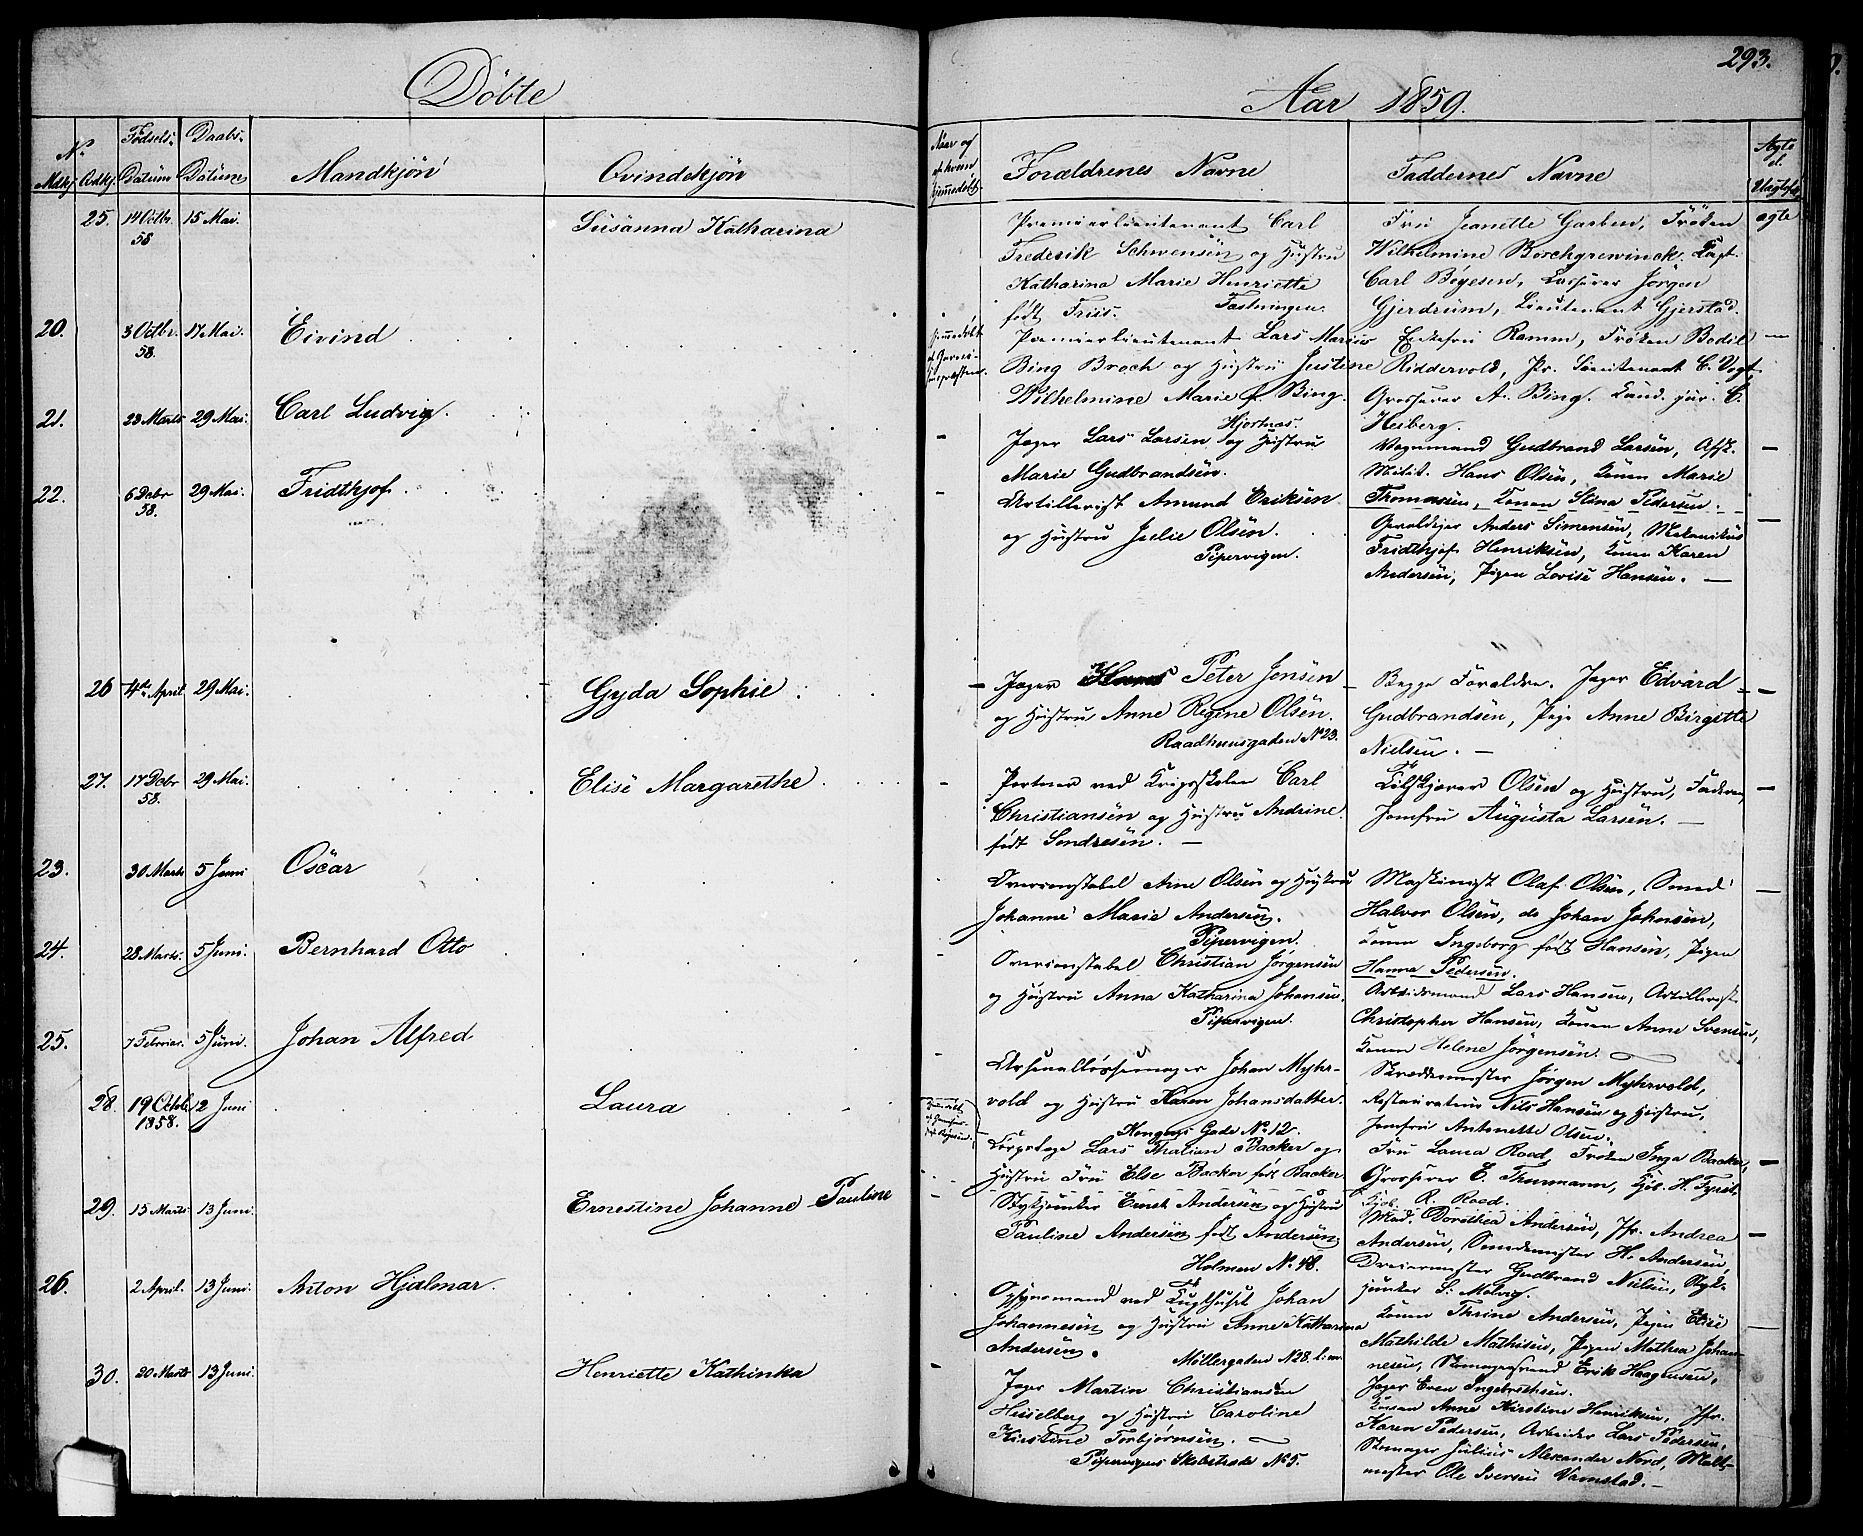 293.
Döbte
Aar 1859.
No
Mdkj. Qdkj.
Födsels-
Datum
Daabs-
Datum
Mandkjön
Qvindekjön
Naar og
af hvem
hjemmedöbt.
Forældrenes Navne
Faddernes Navne
Ægte
el.
Uægte
25. 14 Octbr. 58 15 Mai. Susanna Katharina
Premierlieutenant Carl
Frederik Schwensen og Hustru
Katharina Marie Henriette
født Friis. Fæstningen.
Fru Jeanette Garben, Frøken
Wilhelmine Borchgrewinck. Capt.
Carl Boyesen, Jørgen
Gjerdrum, Lieutenant Gjerstad.
ægte
20. 3 Octbr. 58. 17 Mai. Eivind
Premierlieutenant Lars Marius
Bing Broch og Hustru Justine
Wilhelmine Marie f. Bing.
Hjortnæs.
Enkefru Ramm, Frøken Bodil
Riddervold, Pr. Lieutenant C. Vogt,
Grosserer A. Bing. Cand. jur. C.
Heiberg.
21. 23 Marts 29 Mai. Carl Ludvig.
Jæger Lars Larsen og Hustru
Marie Gudbrandsen.
Vognmand Gudbrand Larsen, Afsk.
Milit. Hans Olsen, Konen Marie
Thomasen, Konen Stina Pedersen.
22. 6 Debr 58. 29 Mai. Fridthjof
Artillerist Amund Eriksen
og Hustru Julie Olsen.
Pipervigen.
Anders Simensen, Mekanikus
Fridthjof Henriksen, Konen Karen
Andersen, Pigen Lovise Hansen.
26 4de April 29 Mai. Gyda Sophie
Jæger Peter Jensen
og Hustru Anne Regine Olsen.
Raadhuusgaden No 23.
Begge Forældre. Jæger Edvard
Gudbrandsen, Pige Anne Birgitte
Nielsen.
27. 17 Debr 58. 29 Mai. Elise Margarethe
Portner ved Krigsskolen Carl
Christiansen og Hustru Andrine
født Sendresen.
Olsen og Hustru, Faderen,
Jomfru Augusta Larsen.
23. 30 Marts 5 Juni Oscar
Overconstabel Arne Olsen og Hustru
Johanne Marie Andersen.
Pipervigen.
Maskinist Olaf Olsen, Smed
Halvor Olsen, do Johan Johnsen,
Konen Ingeborg født Hansen, Pigen
Hanna Pedersen.
24. 28 Marts. 5 Juni. Bernhard Otto
Overconstabel Christian Jørgensen
og Hustru Anna Katharina Johansen.
Pipervigen.
Arbeidsmand Lars Hansen, Artillerist
Christopher Hansen, Konen Anne Svensen,
Konen Helene Jørgensen.
25. 7 Februar. 5 Juni. Johan Alfred
Johan Myhr-
vold og Hustru Karen Johansdatter.
Kongens Gade No 12.
Skræddermester Jørgen Myhrvold,
Restauratør Nils Hansen og Hustru,
Jomfru Antonette Olsen.
28. 19 Octbr 1858. 2 Juni Laura
Corpslæge Lars Thalian Backer og
Hustru Fru Else Backer født Backer
Fru Laura Roed, Frøken Inga Backer,
Grosserer E. Thurmann,
R. Roed.
29. 15 Marts 13 Juni. Ernestine Johanne Pauline
Stykjunker Ernst Andersen og Hustru
Pauline Andersen født Andersen
Holmen No 48.
Mad. Dorothea Andersen, Jfr. Andrea
Andersen, Smedemester H. Andersen,
Dreiermester Gudbrand Nielsen, Styk-
junker S. Malvig.
26. 2 April. 13 Juni. Anton Hjalmar.
Opsynsmand ved Tugthuset Johan
Johannesen og Hustru Anne Katharina
Andersen.
Møllergaden No 28.
Konen Thrine Andersen, Pigen Elise
Mathilde Mathisen, Pigen Mathea Johan-
nesen, Erik Haagensen,
Jæger Even Ingebrethsen.
30. 20 Marts 13 Juni. Henriette Kathinka
Jæger Martin Christiansen
Hesselberg og Hustru Caroline
Kirstine Torbjørnsen.
Pipervigens Skolestræde No 5.
Konen Anne Kirstine Henriksen, Jfr.
Karen Pedersen, Arbeider Lars Pedersen,
Skomager Julius Alexander Nord,
Ole Iversen Vamstad.